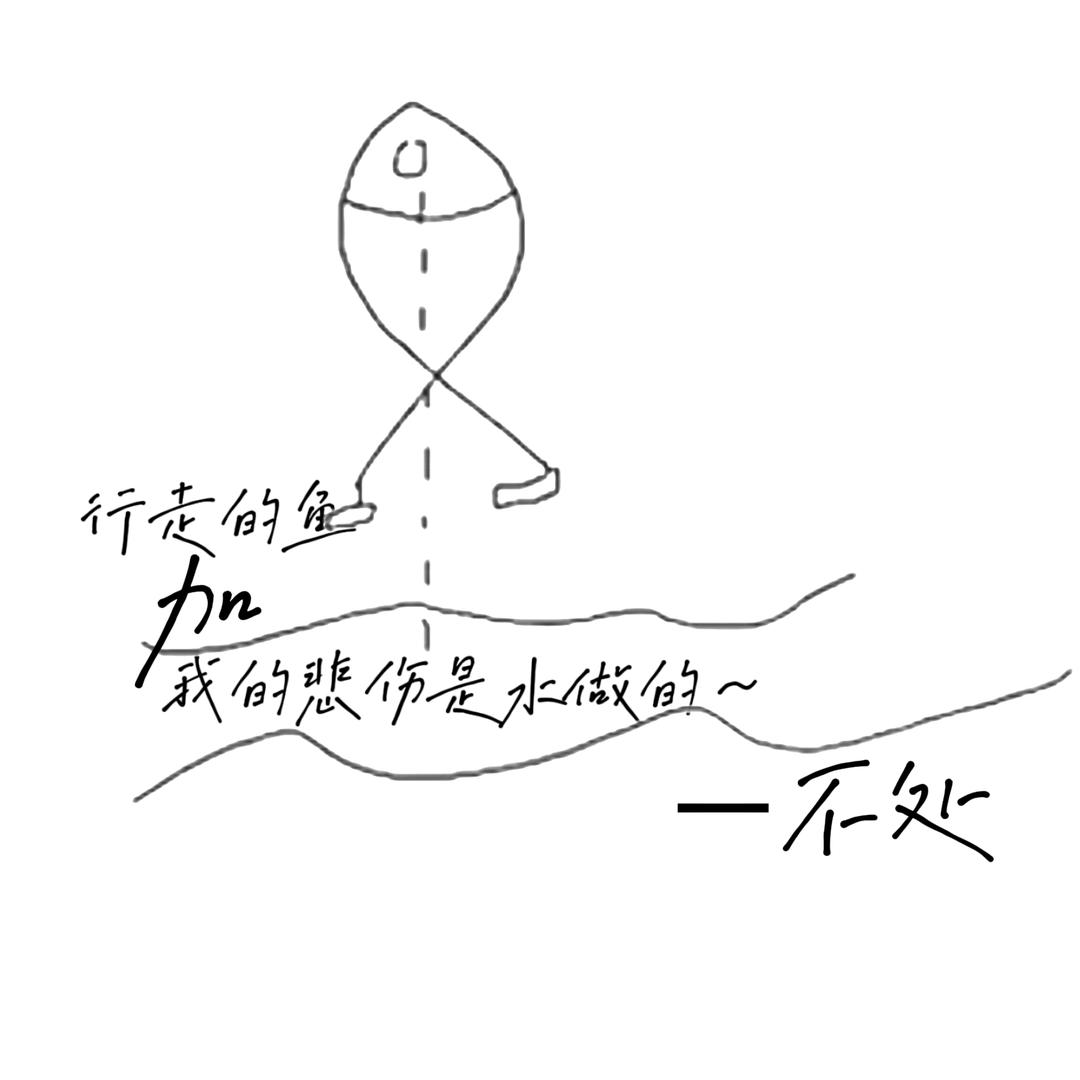 行走的鱼
加
我的悲伤是水做的~
—不处